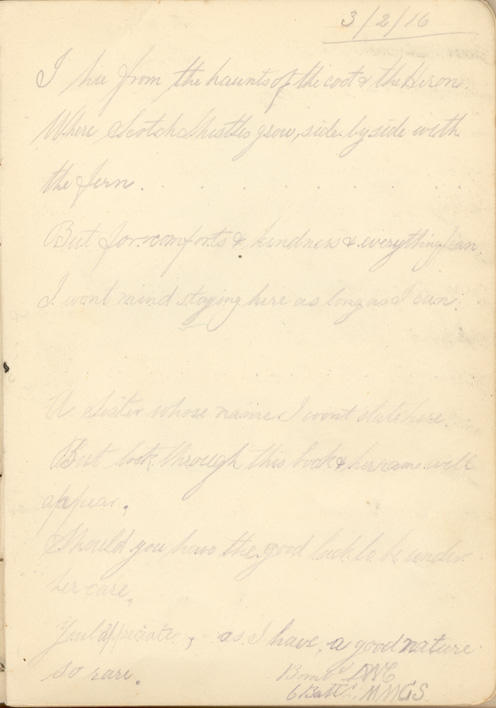 3/2/16
I hie from the haunts of the coot & the Heron.
Where Scotch thistles grow, side by side with
the fern.
But for comforts & kindness & everything
I wont mind staying here as long as I can.
A Sister whose name I wont state here.
But look through this book & her name will
appear.
Should you have the good luck to be under
her care.
Youll appreciate, as I have, a good nature
so rare.
Bombr
6 Batty. M.M.G.S.